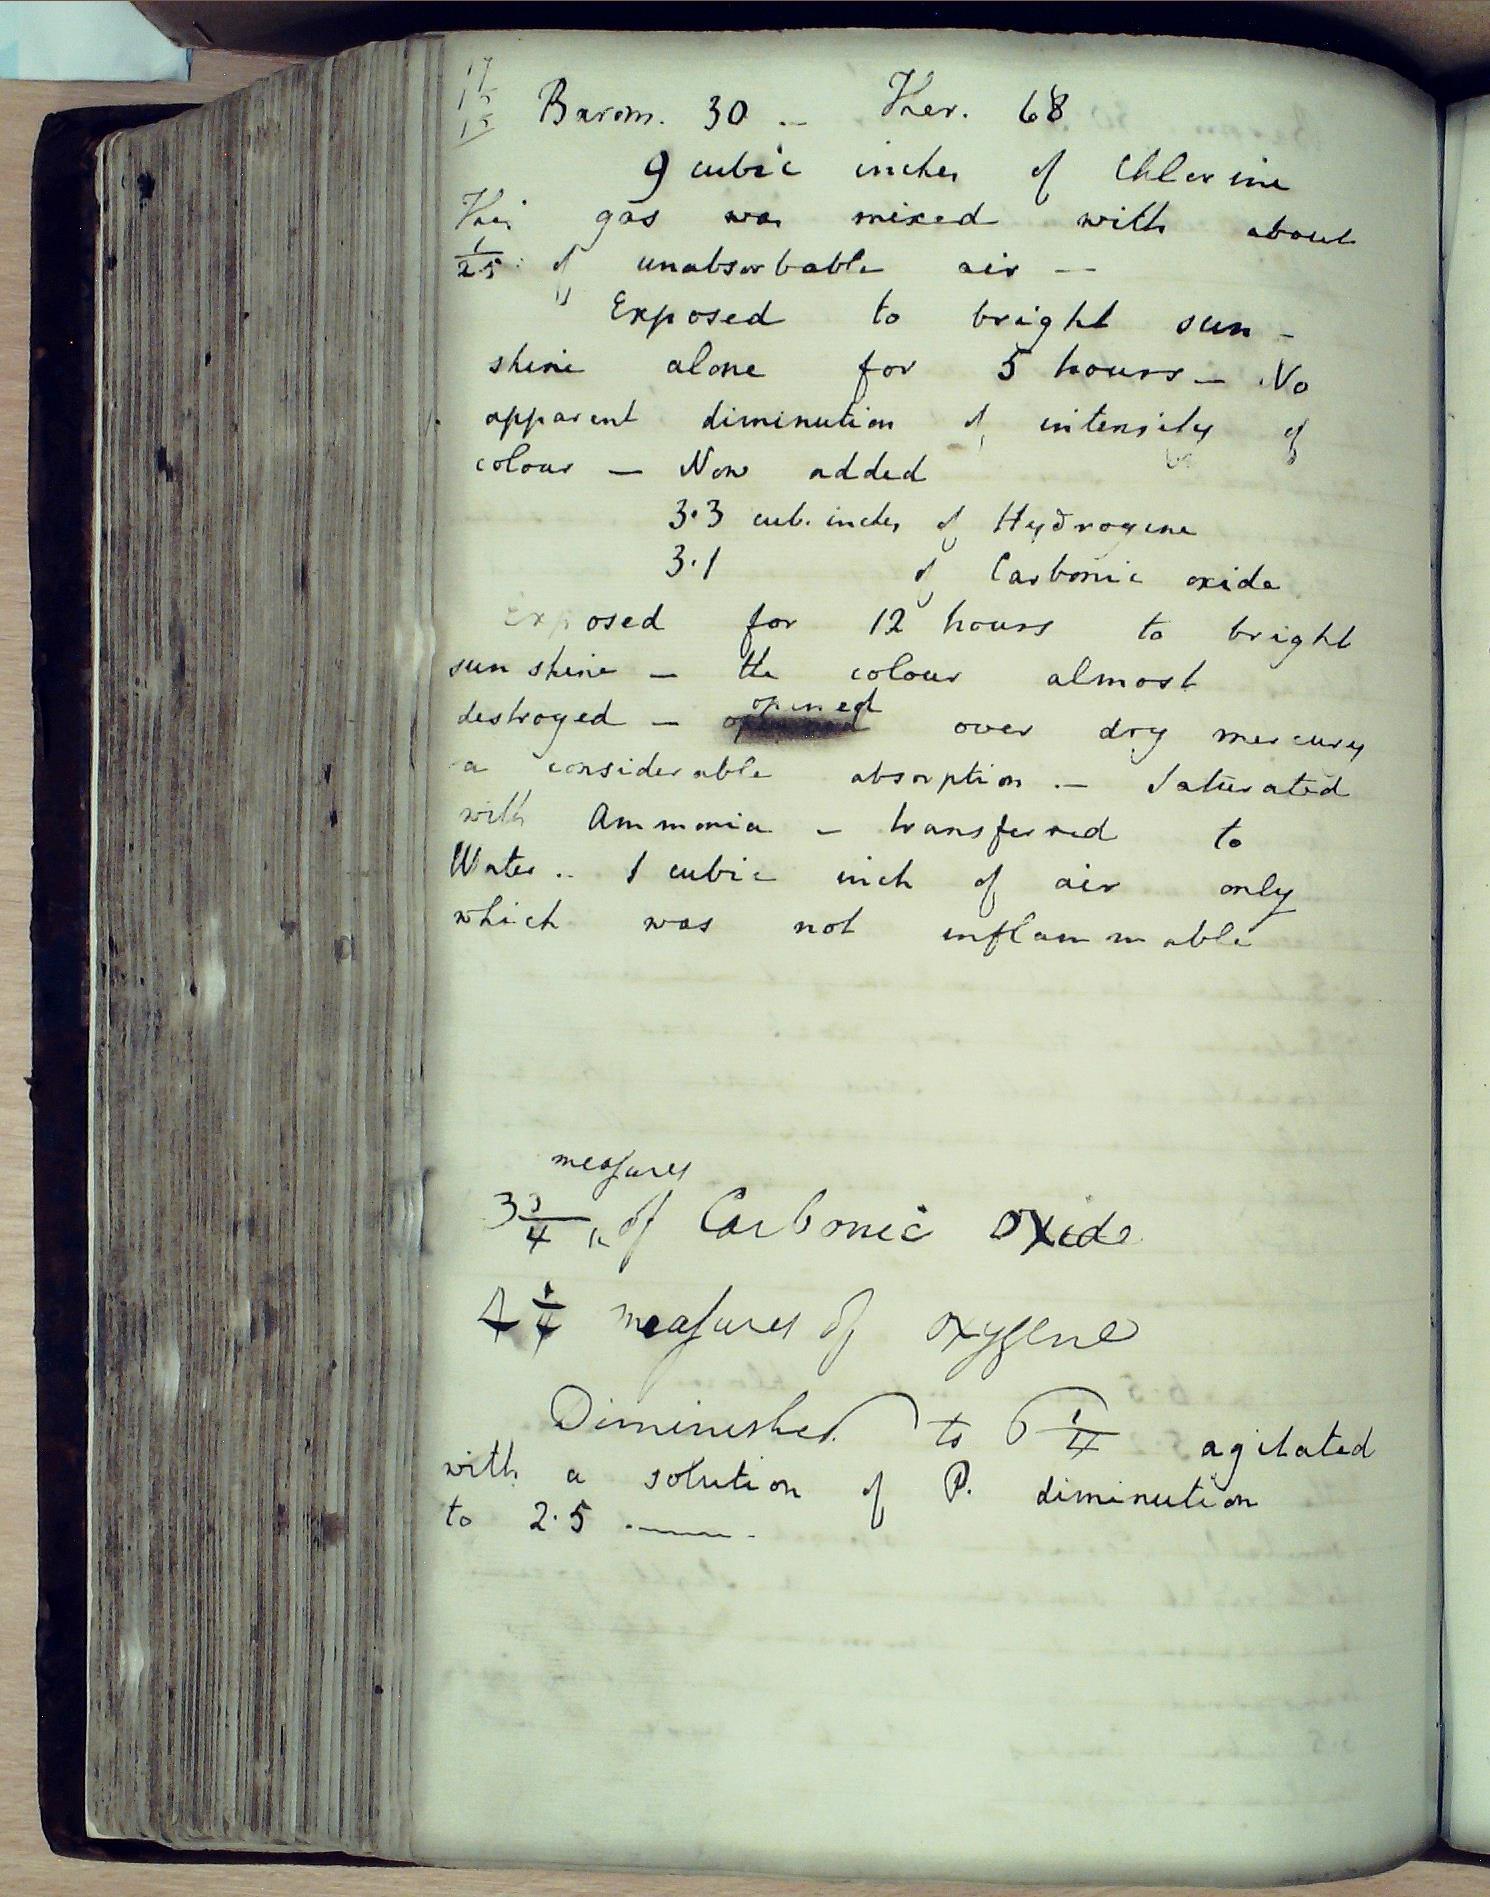 Barom. 30 — Ther. 68
9 cubic inches of Chlorine
This gas was mixed with about
1/25 of unabsorbable air —
Exposed to bright sun-
shine alone for 5 hours — No
apparent diminution of intensity of
colour — Now added
3.3 cub. inches of Hydrogene
3.1 of Carbonic oxide
Exposed for 12 hours to bright
sun shine — the colour almost
destroyed — opened over dry mercury
a considerable absorption — Saturated
with Ammonia — transferred to
Water .. 1 cubic inch of air only
which was not inflammable
measures
3 3/4 of Carbonic oxide
4 1/4 measures of oxygene
Diminished to 6 1/4 agitated
with a solution of P. diminution
to 2.5 ——